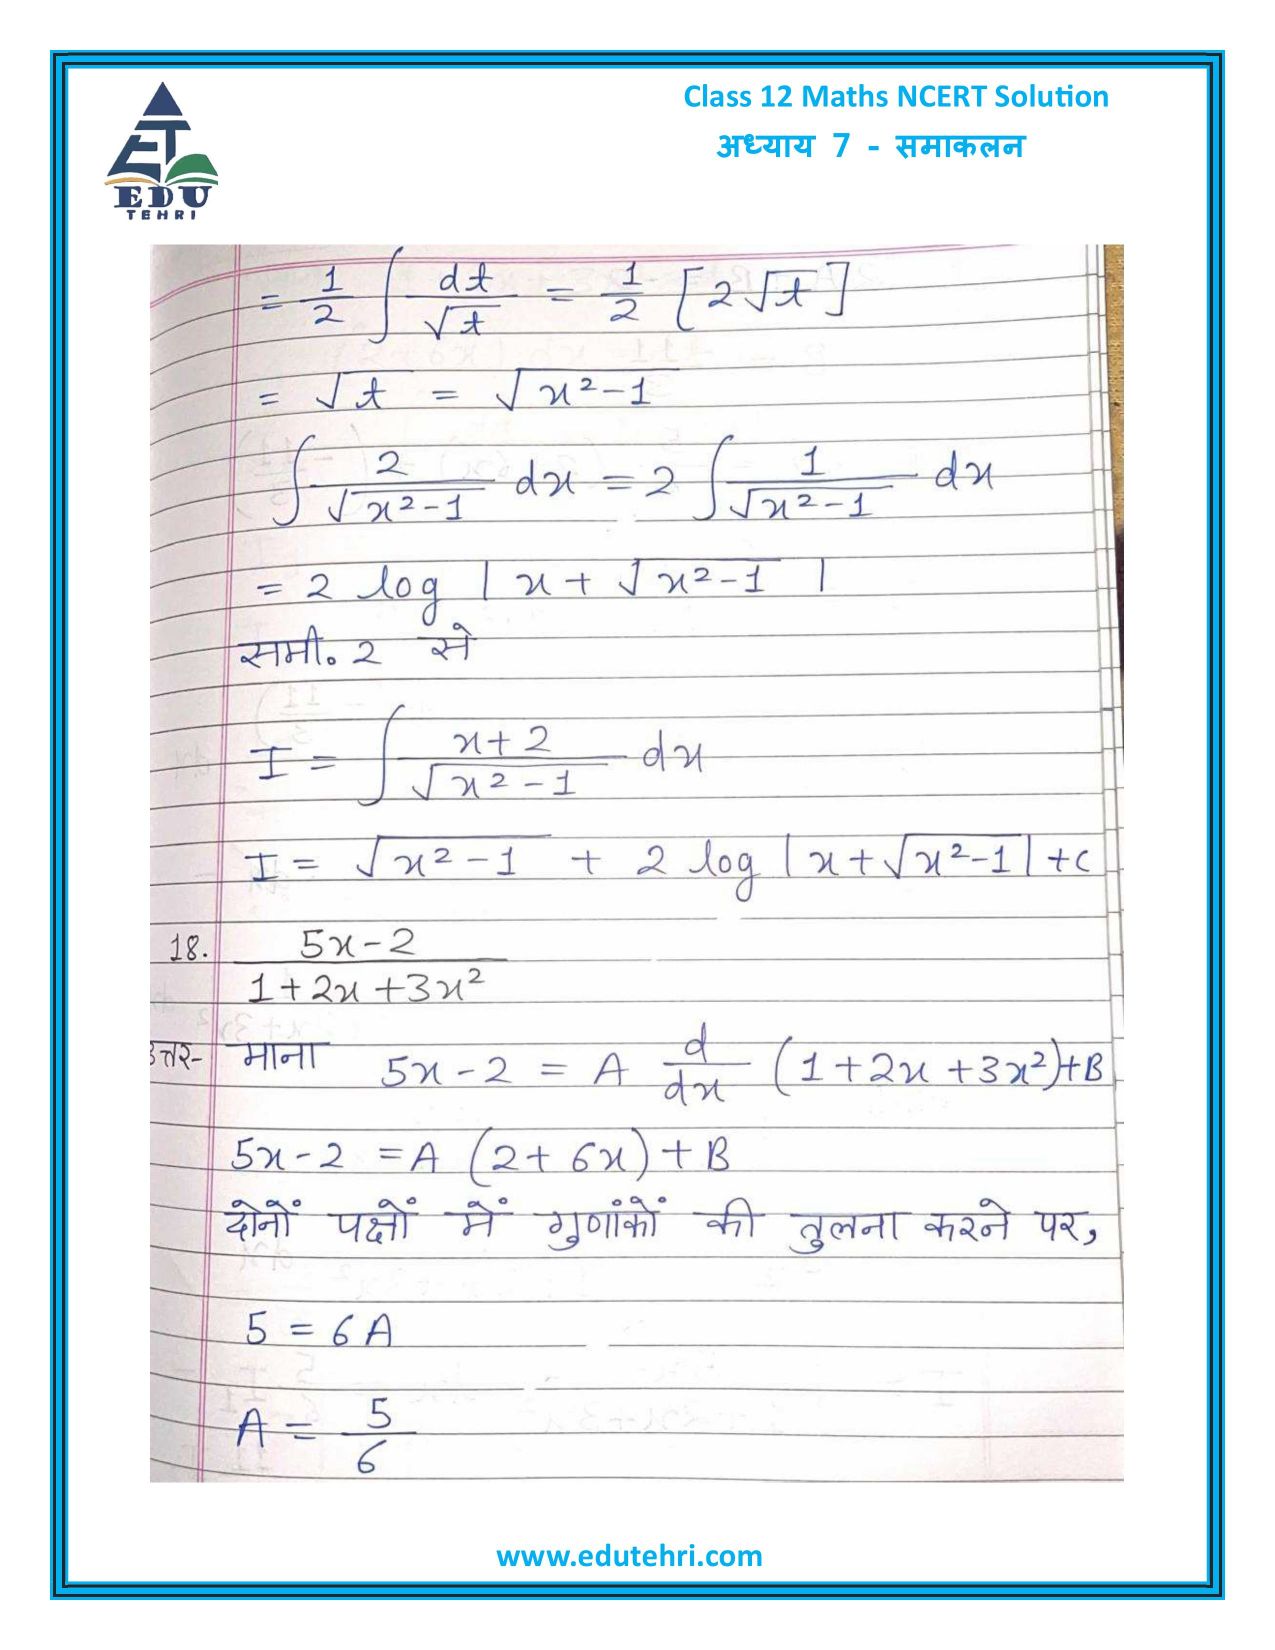 Class 12 Maths NCERT Solution
अध्याय 7 - समाकलन
EDU
TEHRI
= 1/2 ∫ dt/√t = 1/2 [2√t]
= √t = √(x²-1)
∫ 2/√(x²-1) dx = 2 ∫ 1/√(x²-1) dx
= 2 log |x + √(x²-1)|
समी. 2 से
I = ∫ (x+2)/√(x²-1) dx
I = √(x²-1) + 2 log |x+√(x²-1)| + C
18. (5x-2)/(1+2x+3x²)
उत्तर- माना 5x-2 = A d/dx (1+2x+3x²)+B
5x-2 = A (2+6x)+B
दोनों पक्षों में गुणांकों की तुलना करने पर,
5 = 6A
A = 5/6
www.edutehri.com